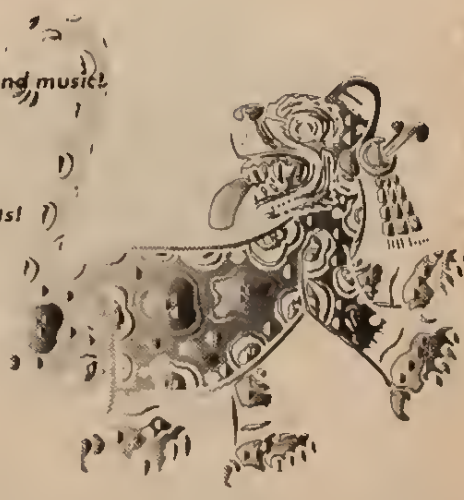 nd music!
s!